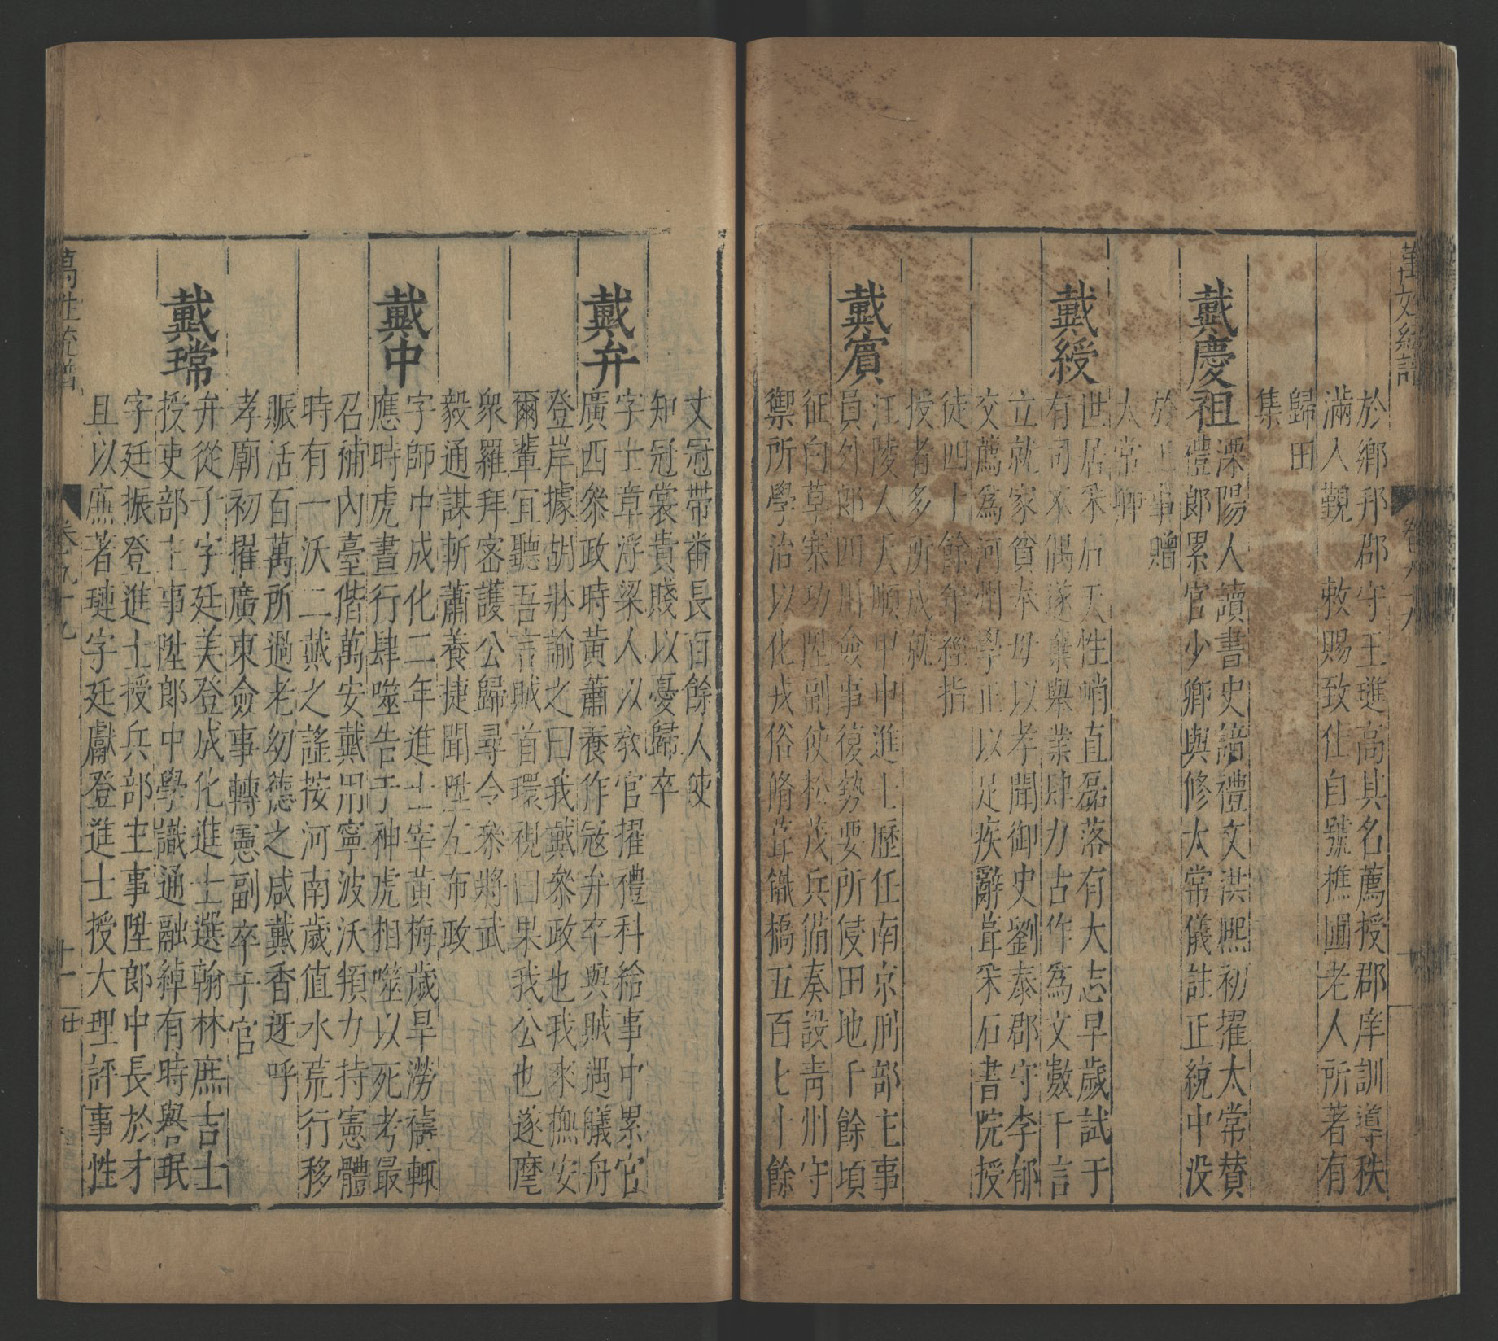 於鄉邦郡守王進高其名薦授郡庠訓導秩
滿入覲　敕賜致仕自號樵圃老人所著有
歸田
集
戴慶祖溧陽人讀書史諳禮文洪熙初擢太常贊
禮郎累官少卿與修太常儀註正統中没
於王事贈
太常卿
戴綬
世居宋后天性峭直磊落有大志早歲試于
有司不偶遂棄舉業肆力古作為文數千言
立就家貧奉母以孝聞御史劉泰郡守李郁
交薦為河州學正以足疾辭葺宋石書院授
徒四十餘年經指
授者多所成就
戴賔
江陵人天順甲申進士歷任南京刑部主事
員外郎四川僉事復勢要所侵田地千餘頃
征白草寨功陞副使松茂兵備奏設青州守
禦所學治以化戎俗脩葺鐵橋五百七十餘
丈冠帶番長百餘人使
知冠裳貴賤以憂歸卒
戴弁
字士章浮梁人以教官擢禮科給事中累官
廣西叅政時黃蕭養作寇弁卒與賊遇艤舟
登岸據胡牀諭之曰我戴叅政也我來撫安
爾輩宜聽吾言賊首環視曰果我公也遂麾
衆羅拜密護公歸尋令叅將武
毅通謀斬蕭養捷聞陞左布政
戴中
字師中成化二年進士宰黃梅歲旱澇禱輒
應時虎晝行肆噬告于神虎相噬以死考最
召補內臺偕萬安戴用寧波沃頖力持憲體
時有一沃二戴之謠按河南歲值水荒行移
賑活百萬所過老幼德之咸戴香迓呼
孝廟初擢廣東僉事轉憲副卒于官
戴瑺
弁從子字廷美登成化進士選翰林庶吉士
授吏部主事陞郎中學識通融綽有時譽珉
字廷振登進士授兵部主事陞郎中長於才
且以廉著璉字廷獻登進士授大理評事性
萬姓統譜
卷九十九
十一